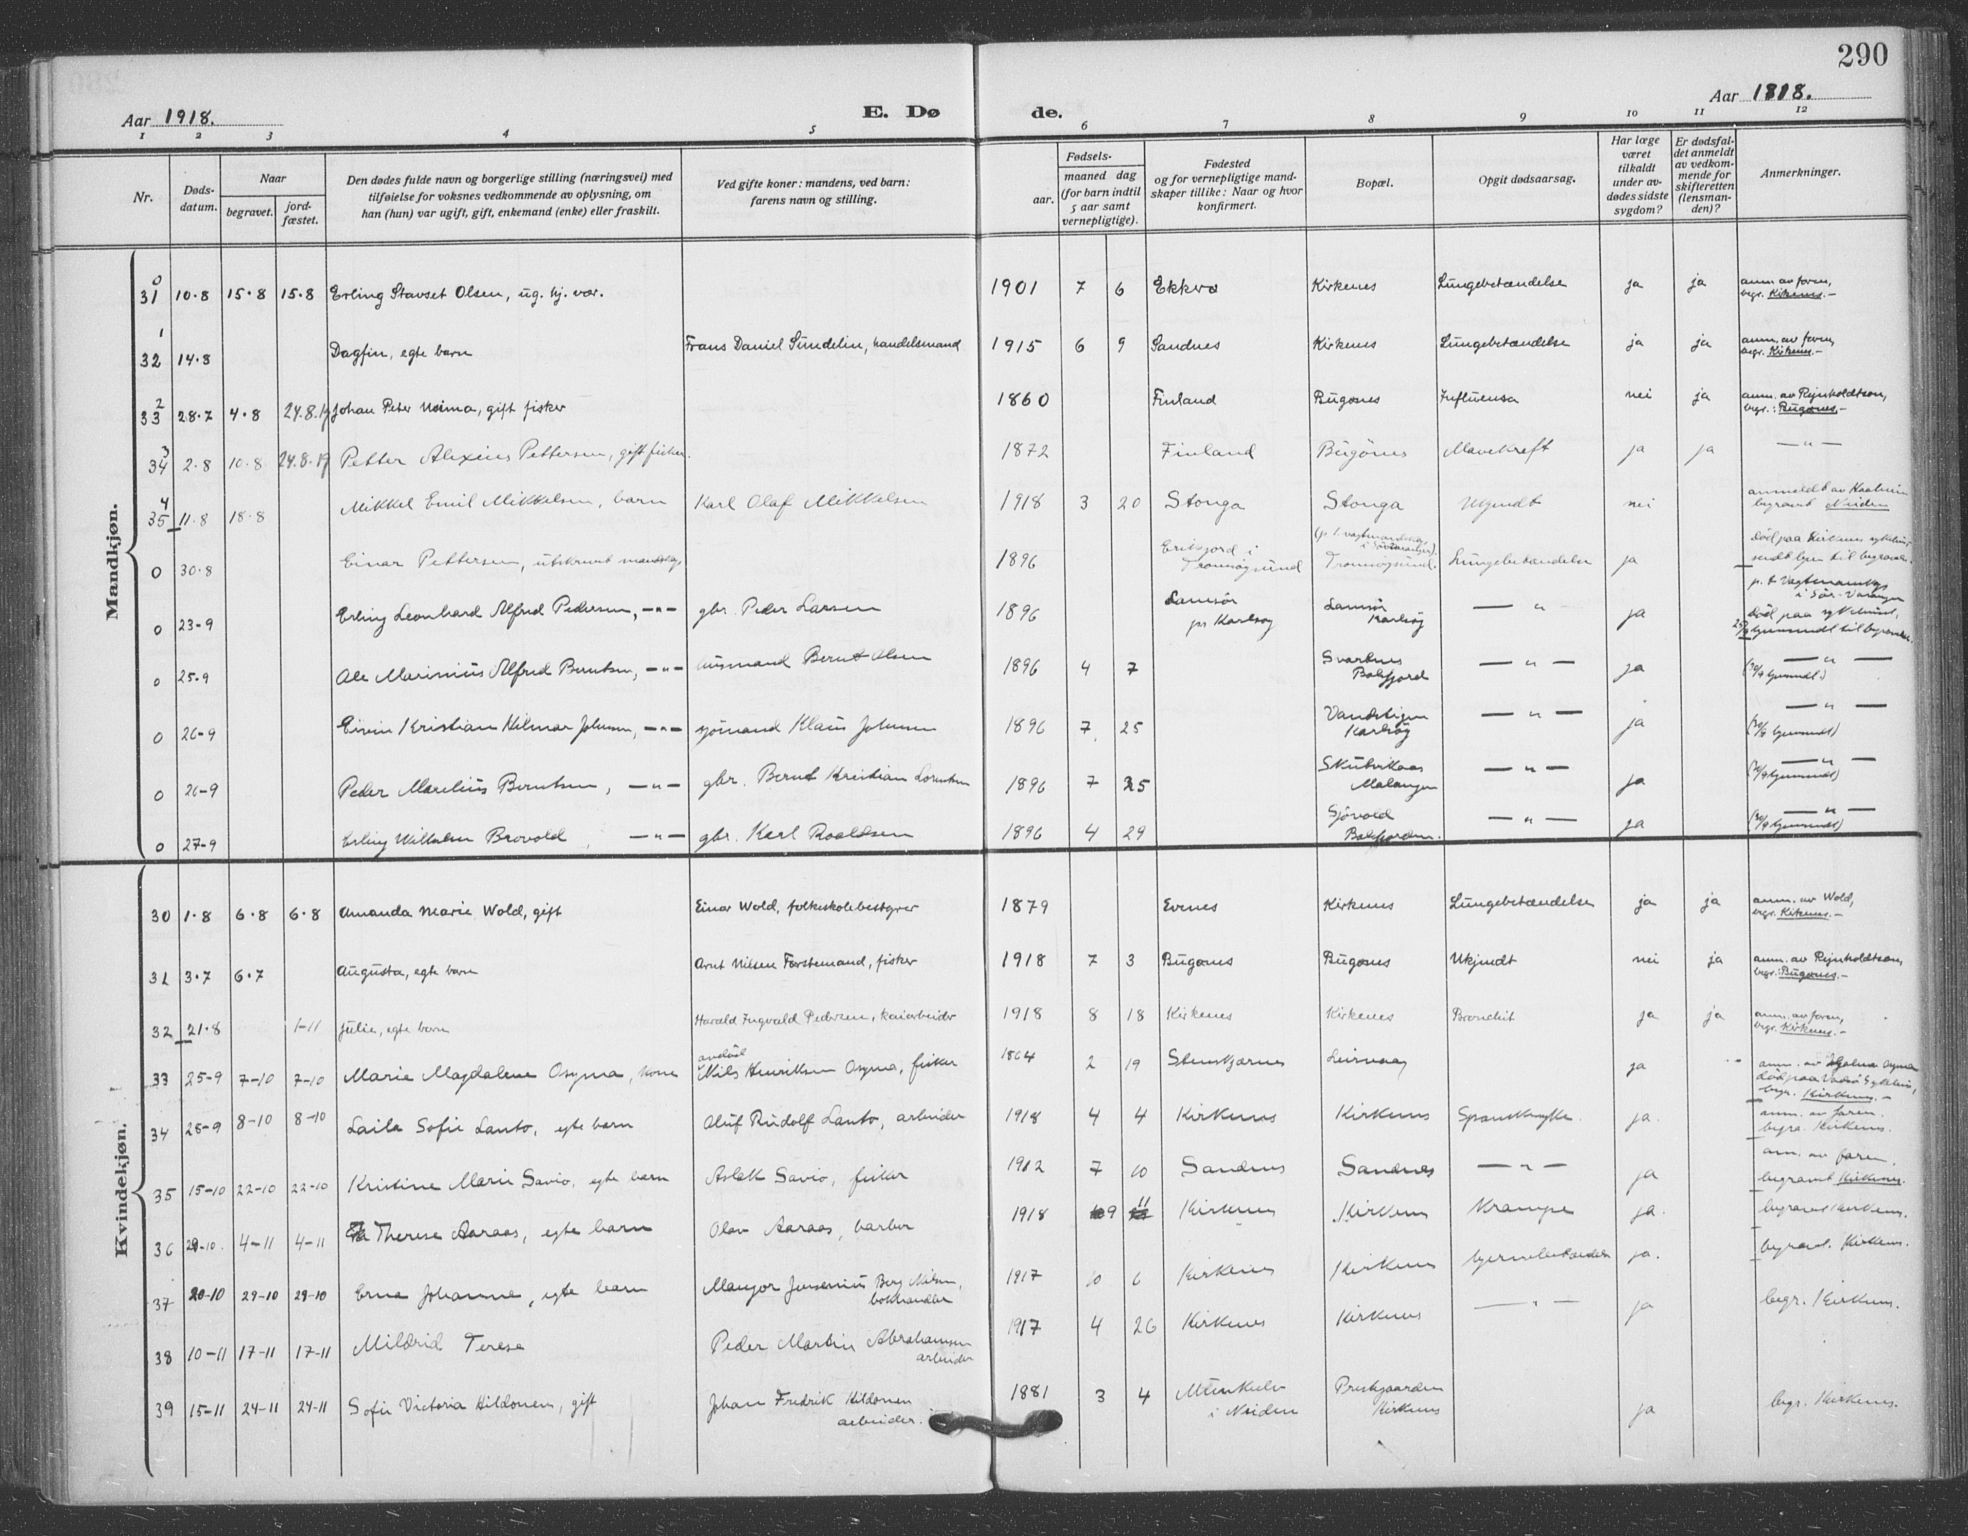 290
Aar 1918. E. Dø de. Aar 1818.
1 2 3 4 5 6 7 8 9 10 11 12
Nr.
Døds-
datum.
Naar
begravet.
jord-
fæstet.
Den dødes fulde navn og borgerlige stilling (næringsvei) med
tilføielse for voksnes vedkommende av oplysning, om
han (hun) var ugift, gift, enkemand (enke) eller fraskilt.
Ved gifte koner: mandens, ved barn:
farens navn og stilling.
Fødsels-
aar.
maaned dag
(for barn indtil
5 aar samt
vernepligtige).
Fødested
og for vernepligtige mand-
skaper tillike: Naar og hvor
konfirmert.
Bopæl.
Opgit dødsaarsag.
Har læge
været
tilkaldt
under av-
dødes sidste
sygdom?
Er dødsfal-
det anmeldt
av vedkom-
mende for
skifteretten
(lensman-
den)?
Anmerkninger.
Mandkjøn.
0
31 10.8 15.8 15.8 Erling Stavset Olsen, ug. hj. vær. 1901 7 6 Ekkerø Kirkenes Lungebetændelse ja ja anm. av faren,
begr. Kirkenes.-
1
32 14.8 Dagfin, egte barn Frans Daniel Sundelin, handelsmand 1915 6 9 Sandnes Kirkenes Lungebetændelse ja ja anm. av faren,
begr. Kirkenes.-
2
33 28.7 4.8 24.8.19 Johan Peter Noima, gift fisker 1860 Finland Bugønes Influensa nei ja anm. av Reinholdtsen,
begr.: Bugønes.-
3
34 2.8 10.8 24.8.19 Petter Alexius Pettersen, gift fisker. 1872 Finland Bugönes Mavekreft ja ja —„—
4
35 11.8 18.8 Mikkel Emil Mikkelsen, barn Karl Olaf Mikkelsen 1918 3 20 Stonga Stonga Ukjendt nei anmeldt av
begravet Neiden
0 30.8 Einar Pettersen, utskrevet mandskap 1896 Eriksfjord i
Tromsøysund (p. t. vagtmandskap
i Sörvaranger).
Tromsøysund. Lungebetændelse ja död paa Kirkenes sykehus,
sendt hjem til begravelse.
0 23-9 Erling Leonhard Alfred Pedersen, —„— gbr. Peder Larsen 1896 Lamsör
pr Karlsöy Lamsör
Karlsöy —„— ja p. t. Vagtmandskap
i Sör-Varanger
död paa sykehuset,
hjemsendt til begravelse.
0 25-9 Ole Marinius Alfred Berntsen, —„— Bernt Olsen 1896 4 7 Svartnes
Balsfjord —„— ja —„—
hjemsendt.)
0 26-9 Eivin Kristian Hilmar Johnsen, —„— sjömand Klaus Johnsen 1896 7 25 Karlsöy —„— ja —„—
hjemsendt)
0 26-9 Peder Marelius Berntsen, —„— gbr. Bernt Kristian Lorentsen 1896 7 25 Malangen —„— ja —„—
hjemsendt)
0 27-9 Erling Wilhelm Brovold —„— gbr. Karl Roaldsen 1896 4 29 Sjövold
Balsfjorden. —„— ja —„—
hjemsendt)
Kvindekjøn.
30 1.8 6.8 6.8 Amanda Marie Wold, gift Einar Wold, folkeskolebestyrer 1879 Evenes Kirkenes Lungebetændelse ja ja anm. av Wold,
begr. Kirkenes.-
31 3.7 6.7 Augusta, egte barn Arnt Nilsen Førstemand, fisker 1918 7 3 Bugønes Bugønes Ukjendt nei ja anm. av Reinholdtsen,
begr.: Bugønes.-
32 21.8 1-11 Julie, egte barn Harald Ingvald Pedersen, kaiarbeider 1918 8 18 Kirkenes Kirkenes Bronchit ja ja anm. av faren,
begr. Kirkenes.-
33 25-9 7-10 7-10 Marie Magdalene Osyma, kone avdöd
Nils Henriksen Osyma, fisker 1864 2 19 Stenskjærnes Leirvaag ja anm. av Osyma
död paa Vadsö Sykehus,
begr. Kirkenes.-
34 25-9 8-10 8-10 Laila Sofie Lanto, egte barn Oluf Rudolf Lanto, arbeider 1918 4 4 Kirkenes Kirkenes Spansksyke. ja. anm. av faren.
begra. Kirkenes.
35 15-10 22-10 22-10 Kristine Marie Savio, egte barn Aslak Savio, fisker 1912 7 10 Sandnes Sandnes —„— ja am. av faren.
begravet Kirkenes.
36 29-10. 4-11 4-11 Therese Aaraas, egte barn Olav Aaraas, barber 1918 9 11 Kirkenes Kirkenes Krampe ja. begravet Kirkenes.
37 20-10 29-10 29-10 Erna Johanne, egte barn Mangor Jensenius Berg Nilsen,
bokhandler 1917 10 6 Kirkenes Kirkenes hjernebetændelse ja. begravet. Kirkenes.
38 10-11 17-11 17-11 Mildrid Terese Peder Martin Abrahamsen
arbeider 1917 4 26 Kirkenes Kirkenes —„— ja begr. Kirkenes.
39 15-11 24-11 24-11 Sofie Victoria Hildonen, gift Johan Fredrik Hildonen
arbeider. 1881 3 4 Munkelv
i Neiden Prestgaarden
Kirkenes ja begr. Kirkenes.